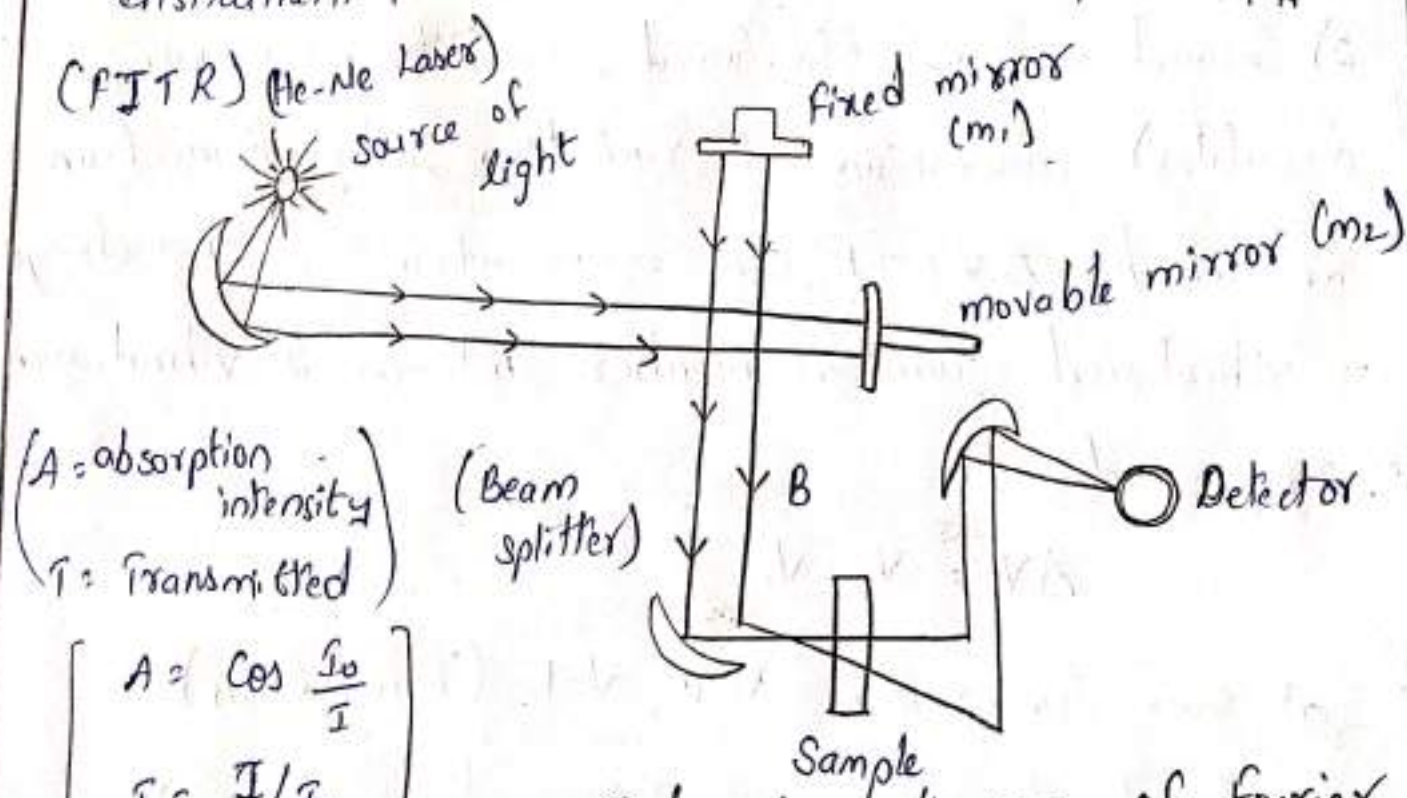 (FITR) (He-Ne Laser)
source of
light
fixed mirror
(m1)
movable mirror (m2)
A = absorption
intensity
T = Transmitted
(Beam
splitter)
B
Detector.
A = Cos I0/I
Sample
of fourier